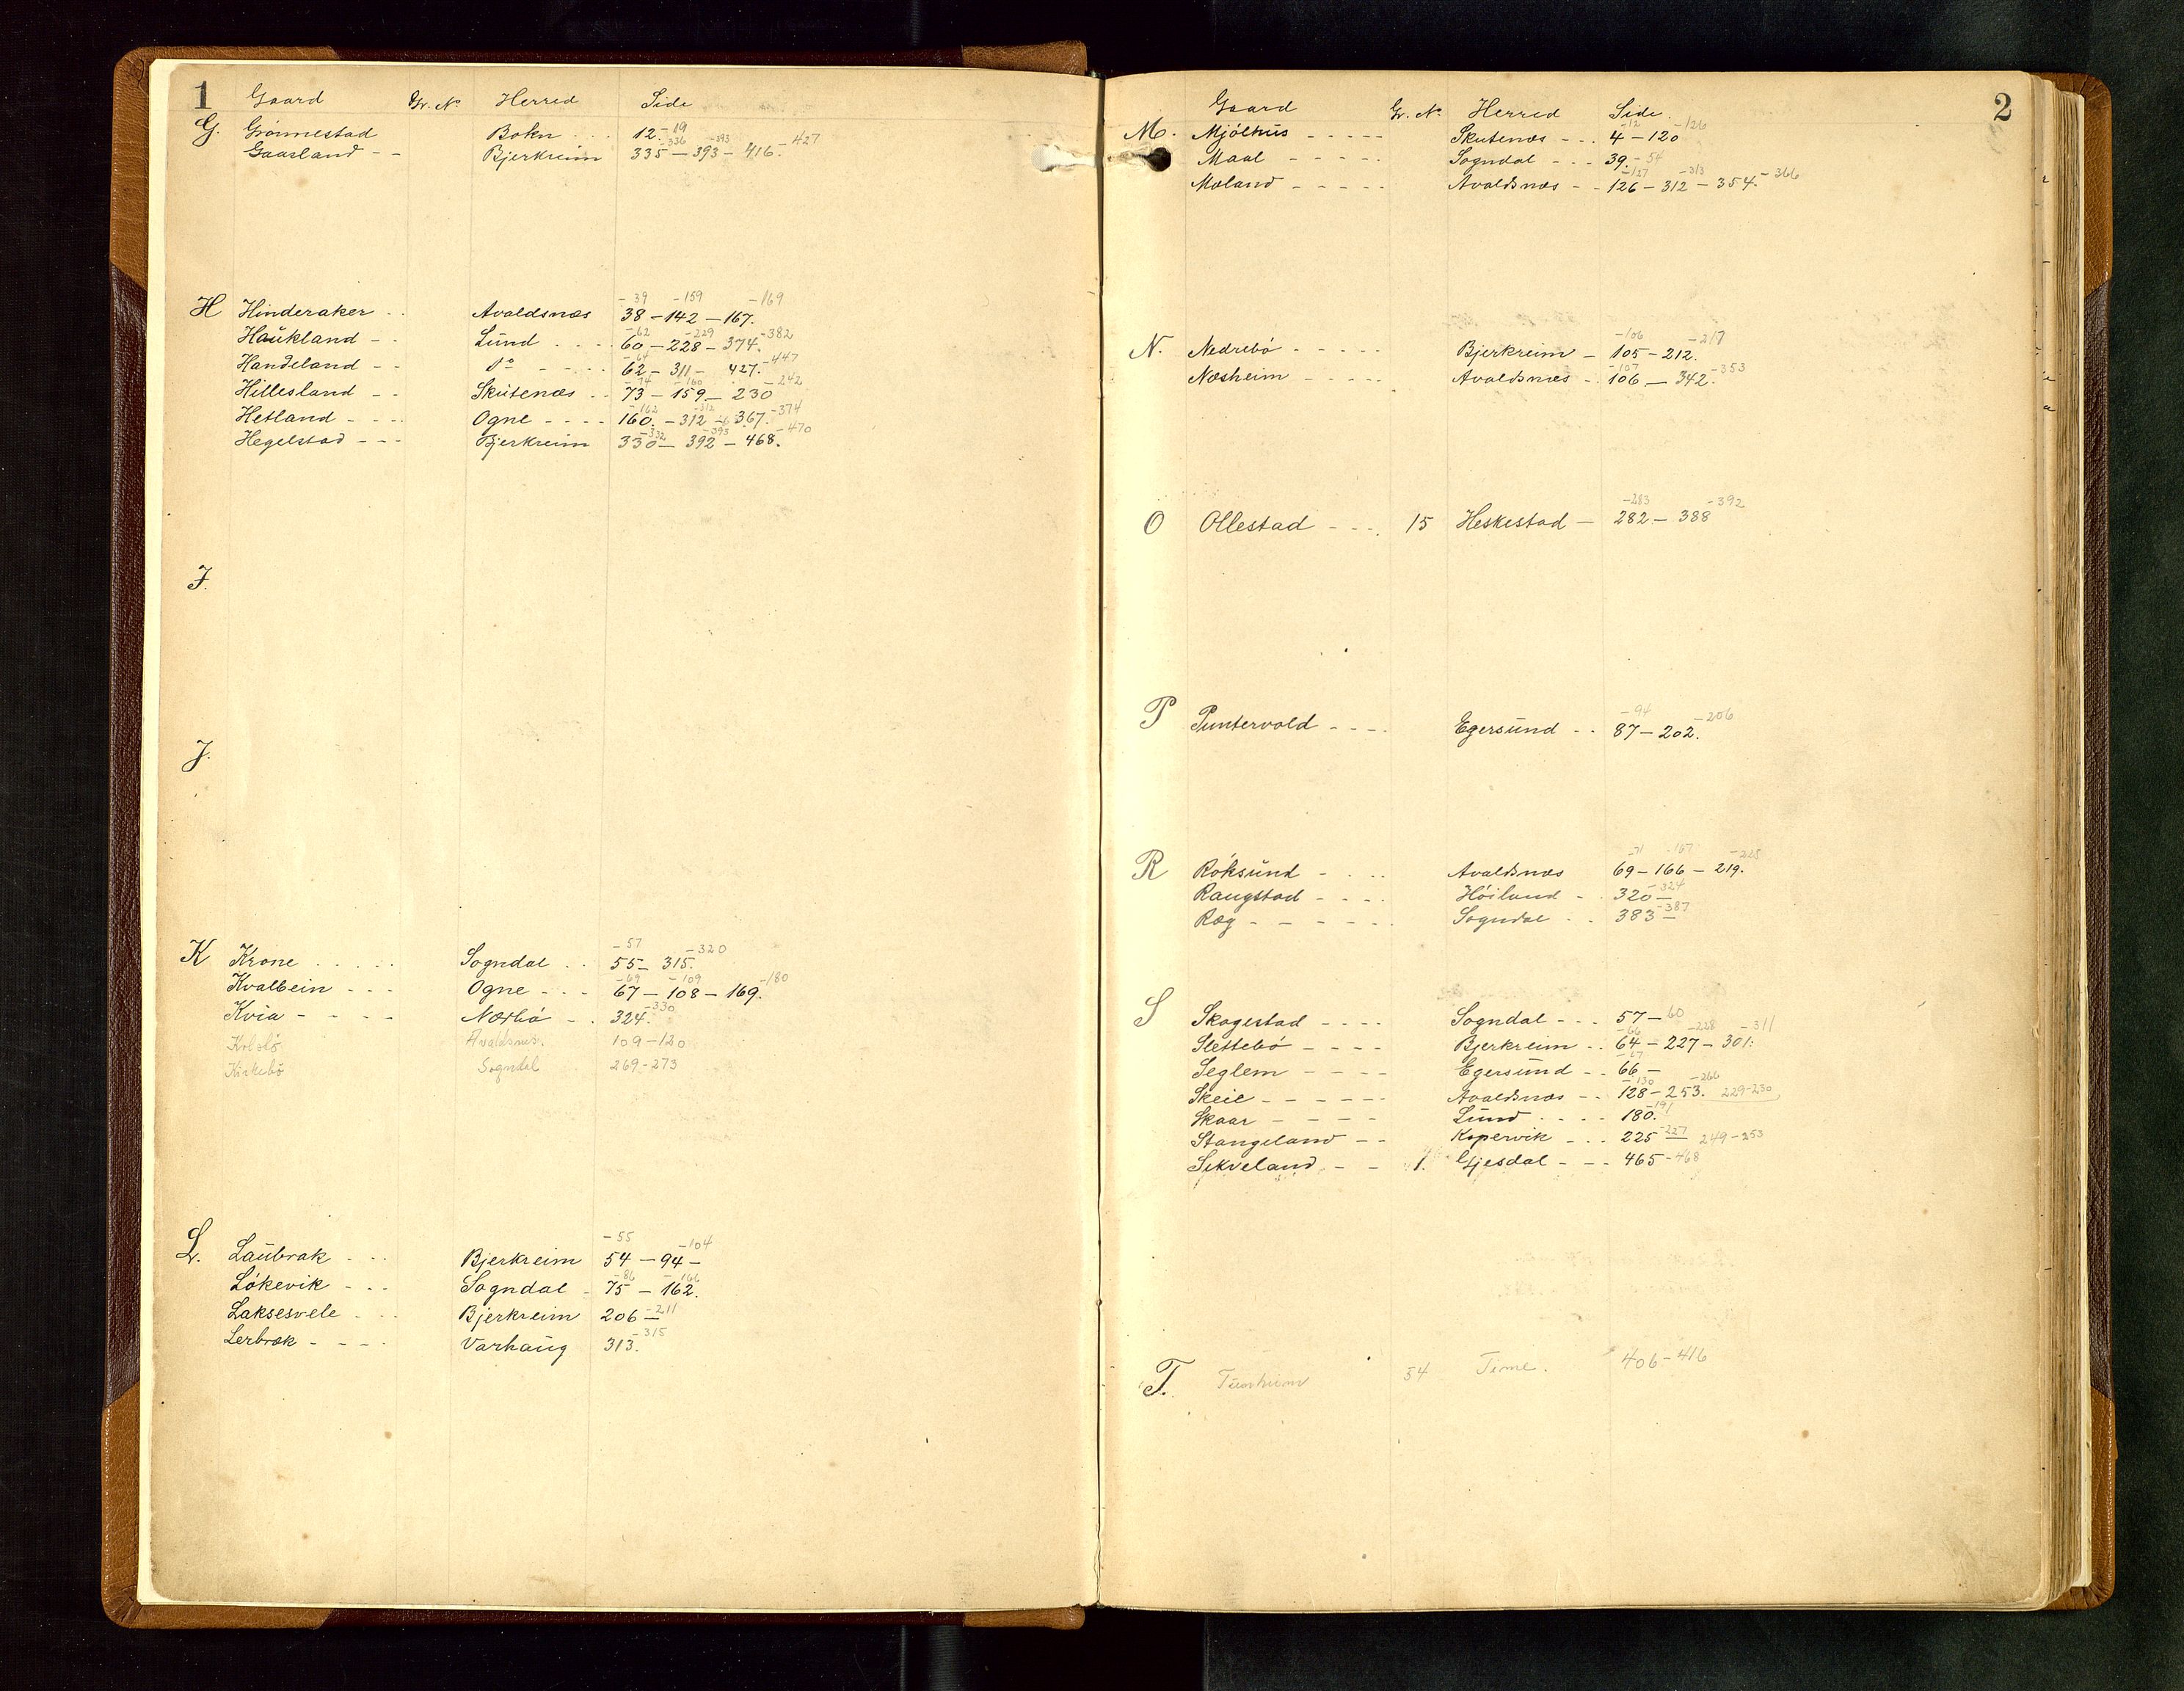 1 Gaard Gr. No Herred Side
G. Grönnestad Bokn . . . 12.-19
Gaasland - - Bjerkreim 335-336 - 393-393 - 416.-427
H Hinderaker . . Avaldsnæs 38-39 - 142-159 - 167.-169
Haukland - . Lund . . . . 60-62 - 228-229 - 374.-382
Handeland - - Do - - . . 62-64 - 311 - 427.-447
Hillesland - - Skutenæs . . 73-74 - 159-160 - 230-242
Hetland - - - - Ogne - - - - 160.-162 - 312-312 - 367.-374
Hegelstad - - - Bjerkreim 330-332 - 392-393 - 468.-470
I.
J.
K Krone . . . . . Sogndal . . 55-57 - 315.-320
Kvalbein - - - Ogne - - - 67-69 - 108-109 - 169.-180
Kvia - - - - Nærbö - . 324.-330
Avaldsnæs. 109-120
Kirkebö Sogndal 269-273
L. Laubrak - . . Bjerkreim 54-55 - 94-104
Lökevik - - . Sogndal - 75-86 - 162.-166
Laksesvele - . . Bjerkreim 206-211
Lerbrek - - - . Varhaug 313.-315
2
Gaard Gr. No Herred Side.
M. Mjölhus - - - - - Skutenæs - - . 4-12 - 120-126
Maal - - - - - Sogndal - - - 39.-54
Moland - - - - - Avaldsnæs - - 126-127 - 312-313 - 354.-366
N. Nedrebö - - - - - Bjerkreim - 105-106 - 212.-217
Næsheim - - - - - Avaldsnæs - . 106-107 - 342.-353
O Ollestad - - - . 15 Heskestad - 282-283 - 388-392
P Puntervold - - - - Egersund - . 87-94 - 202.-206
R Röksund - - . . Avaldsnæs 69-71 - 166-167 - 219.-225
Raugstad - - - - Höiland - . 320-324
Ræg - - - - - . Sogndal . . 383-387
S Skogestad - - - - Sogndal - - - 57-60
Slettebö - - - - Bjerkreim . . 64-66 - 227-228 - 301.-311
Seglem - - - - Egersund - . 66-67
Skeie - - - - - Avaldsnæs - . 128-130 - 253.-266 229-230
Skaar - - - - Lund . - . . 180.-191
Stangeland - - Kopervik - - . 225-227 249-253
Sikveland - - 1. Gjesdal - - - 465-468
T. 54 Time. 406-416